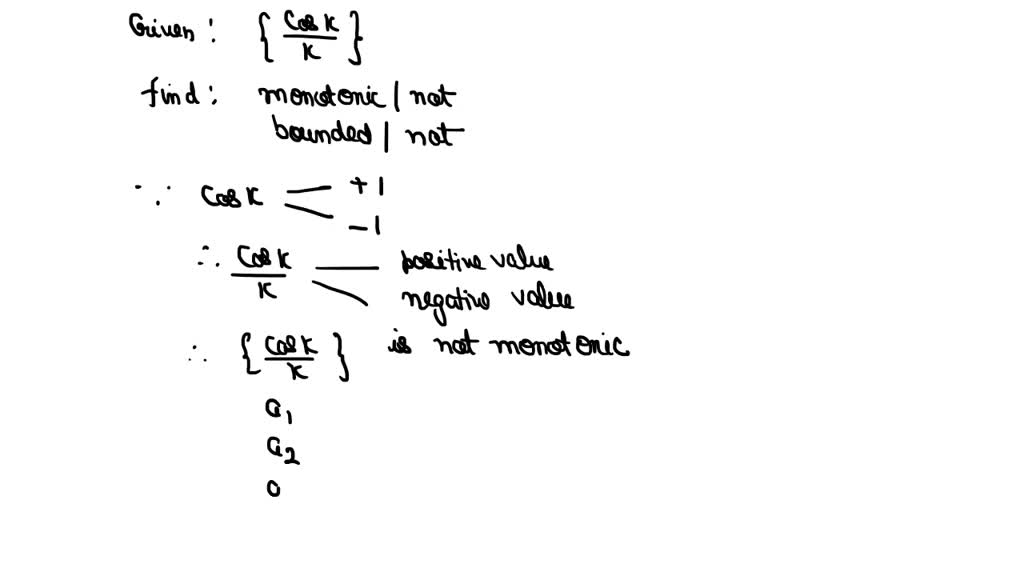 Given: { cos k / k }
find: monotonic | not
bounded | not
∵ cos k +1
-1
∴ cos k / k positive value
negative value
∴ { cos k / k } is not monotonic
a₁
a₂